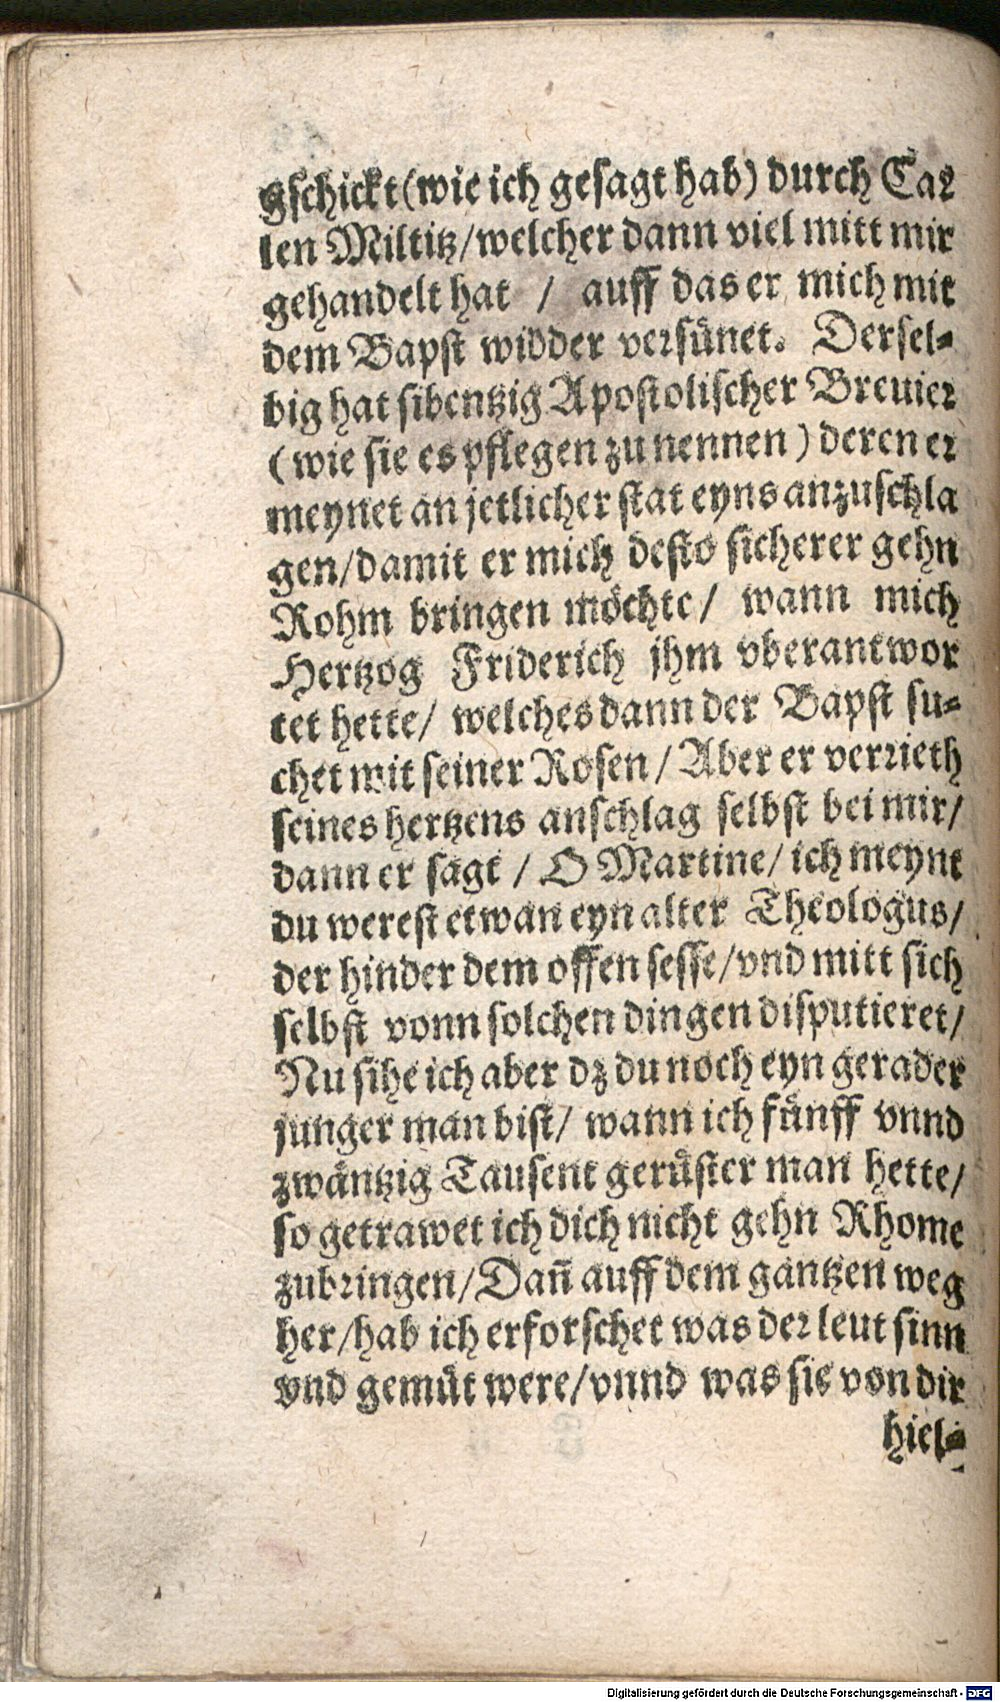 gschickt (wie ich gesagt hab) durch Car
len Miltitz/welcher dann viel mitt mir
gehandelt hat / auff das er mich mit
dem Bapst widder versünet. Dersel-
big hat sibentzig Apostolischer Breuier
(wie sie es pflegen zu nennen) deren er
meynet an jetlicher stat eyns anzuschla
gen/damit er mich desto sicherer gehn
Rohm bringen möchte/ wann mich
Hertzog Friderich jhm vberantwor
tet hette/ welches dann der Bapst su-
chet mit seiner Rosen/ Aber er verrieth
seines hertzens anschlag selbst bei mir/
dann er sagt / O Martine/ ich meynt
du werest etwan eyn alter Theologus/
der hinder dem offen sesse/vnd mitt sich
selbst vonn solchen dingen disputieret/
Nu sihe ich aber dz du noch eyn gerader
junger man bist/ wann ich fünff vnnd
zwäntzig Tausent gerüster man hette/
so getrawet ich dich nicht gehn Rhome
zubringen/Dañ auff dem gantzen weg
her/hab ich erforschet was der leut sinn
vnd gemüt were/vnnd was sie von dir
hiel-
Digitalisierung gefördert durch die Deutsche Forschungsgemeinschaft - DFG